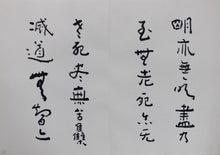 明亦無明盡乃
至無老死亦无
老死盡無苦集
滅道無智亦